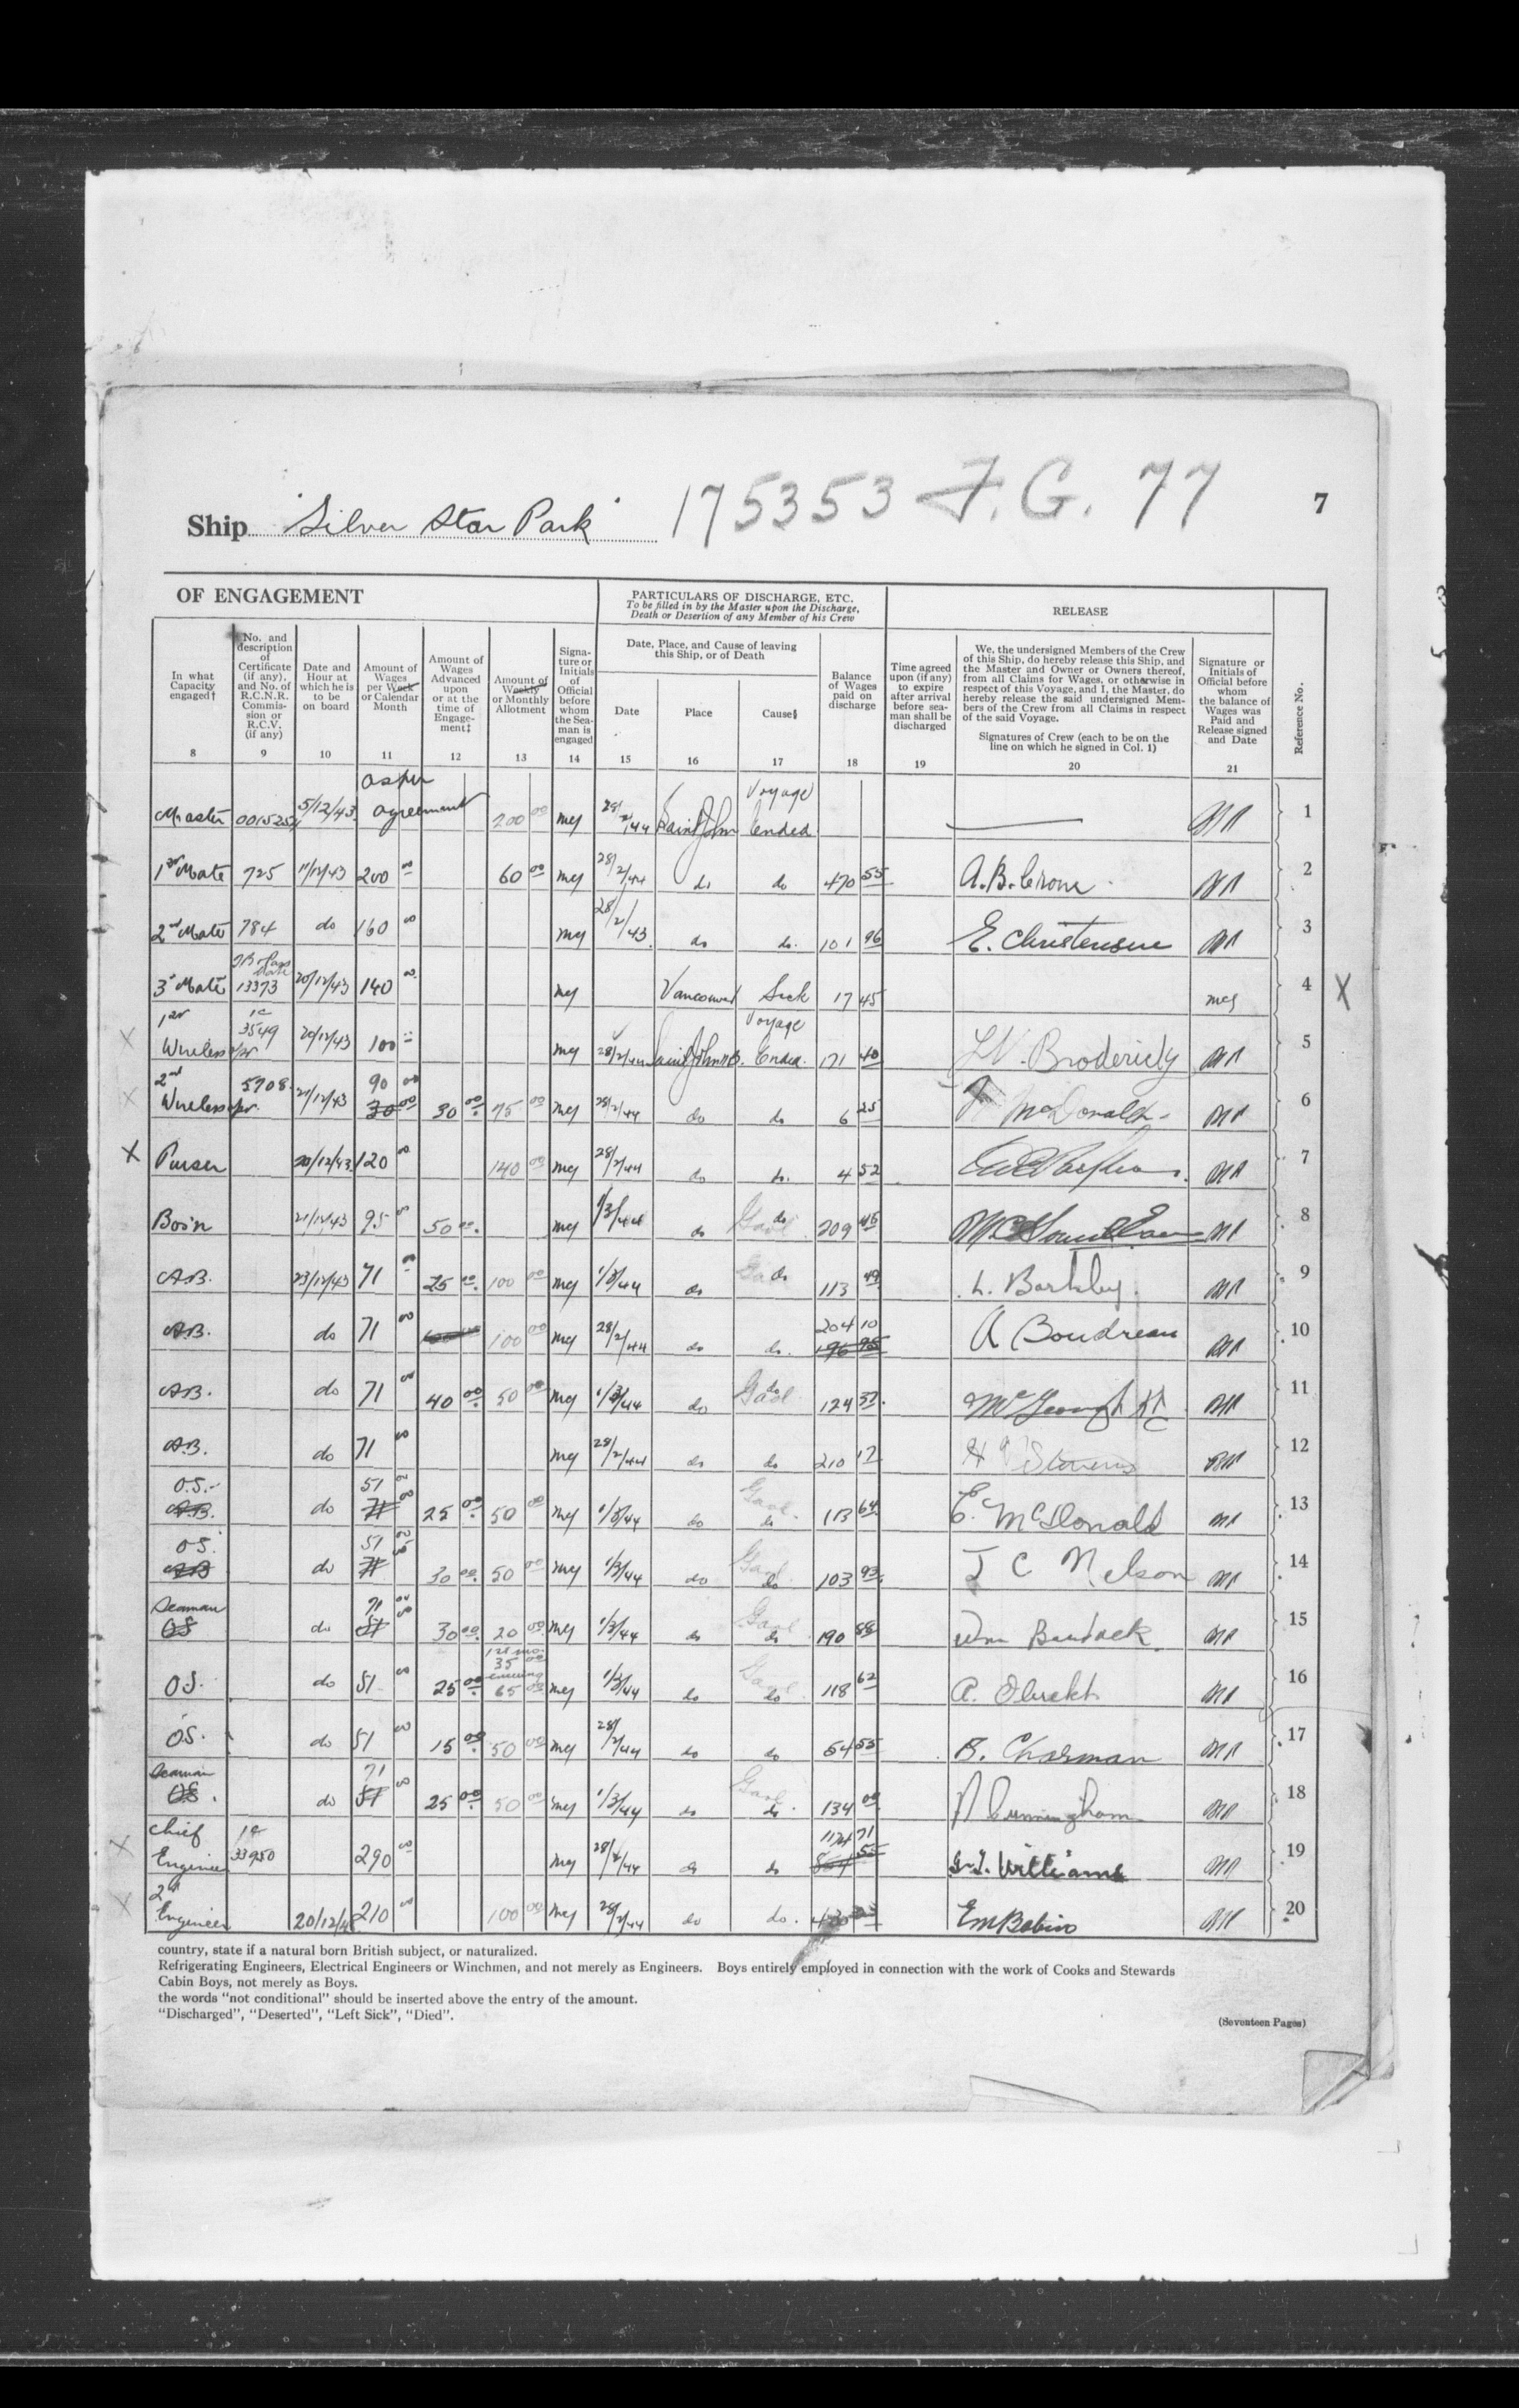 Ship "Silver Star Park" 175353 F.G. 77 7
OF ENGAGEMENT
PARTICULARS OF DISCHARGE, ETC.
To be filled in by the Master upon the Discharge,
Death or Desertion of any Member of his Crew
RELEASE
In what Capacity engaged†
No. and description of Certificate (if any), and No. of R.C.N.R. Commission or R.C.V. (if any)
Date and Hour at which he is to be on board
Amount of Wages per Week or Calendar Month
Amount of Wages Advanced upon or at the time of Engagement‡
Amount of Weekly or Monthly Allotment
Signature or Initials of Official before whom the Seaman is engaged
Date, Place, and Cause of leaving this Ship, or of Death
Date Place Cause§
Balance of Wages paid on discharge
Time agreed upon (if any) to expire after arrival before seaman shall be discharged
We, the undersigned Members of the Crew of this Ship, do hereby release this Ship, and the Master and Owner or Owners thereof, from all Claims for Wages, or otherwise in respect of this Voyage, and I, the Master, do hereby release the said undersigned Members of the Crew from all Claims in respect of the said Voyage.
Signatures of Crew (each to be on the line on which he signed in Col. 1)
Signature or Initials of Official before whom the balance of Wages was Paid and Release signed and Date
Reference No.
8 9 10 11 12 13 14 15 16 17 18 19 20 21
Master 5/12/43 as per agreement 200 00 28/2/44 Saint John Voyage Ended 1
1st Mate 725 11/12/43 200 00 60 00 28/2/44 do do 470 55 A.B. Crone 2
2nd Mate 784 do 160 00 28/2/43 do do. 101 96 E. Christensen 3
3rd Mate 13373 20/12/43 140 00 Vancouver Sick 17 45 4 X
X 1st Wireless opr 1c 3549 20/12/43 100 28/2/44 Saint John N.B. Voyage Ended. 171 40 5
X 2nd Wireless opr 5708 21/12/43 90 00 30 00 30 00 75 00 28/2/44 do do 6 25 McDonald 6
X Purser 20/12/43 120 00 140 00 28/2/44 do do. 4 52 7
Bos'n 21/12/43 95 00 50 00 1/3/44 do Gaol do 209 46 8
A.B. 23/12/43 71 00 25 00 100 00 1/3/44 do do 113 49 L. Barkley 9
A.B. do 71 00 100 00 28/2/44 do do. 204 10 196 95 A Boudreau 10
A.B. do 71 00 40 00 50 00 1/3/44 do Gaol do 124 37 11
A.B. do 71 00 28/2/44 do do 210 17 12
O.S. A.B. do 51 00 71 00 25 00 50 00 1/3/44 do Gaol do 113 64 E. McDonald 13
O.S. A.B. do 51 00 71 30 00 50 00 1/3/44 do Gaol do 103 93 J C Nelson 14
Seaman OS do 71 00 51 30 00 20 00 1/3/44 do Gaol do 190 88 15
OS. do 51 00 25 00 1st mo. 35 00 ensuing 65 00 1/3/44 do Gaol do 118 62 16
OS. do 51 00 15 00 50 00 28/2/44 do do 54 55 B. Charman 17
Seaman OS. do 71 51 00 25 00 50 00 1/3/44 do Gaol do 134 00 Cunningham 18
X Chief Engineer 1c 33950 290 00 28/2/44 do do 1174 71 G.T. Williams 19
X 2nd Engineer 20/12/4 210 00 100 00 28/2/44 do do. 20
country, state if a natural born British subject, or naturalized.
Refrigerating Engineers, Electrical Engineers or Winchmen, and not merely as Engineers. Boys entirely employed in connection with the work of Cooks and Stewards
Cabin Boys, not merely as Boys.
the words "not conditional" should be inserted above the entry of the amount.
"Discharged", "Deserted", "Left Sick", "Died".
(Seventeen Pages)